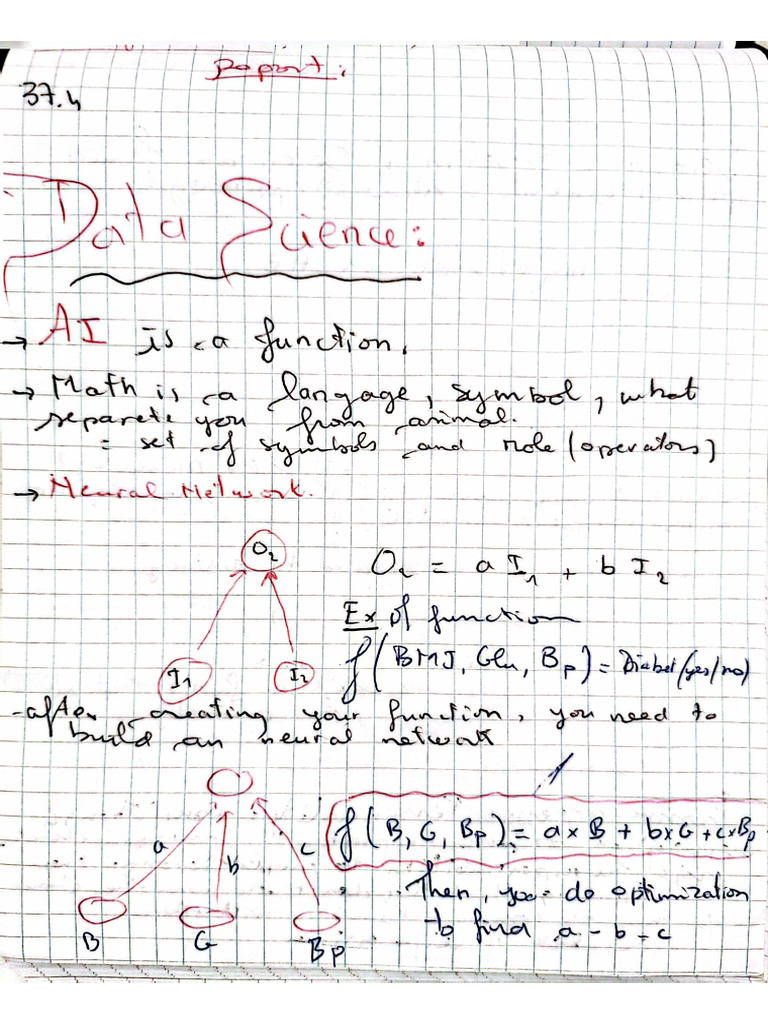 Raport:
37.4
Data Science:
→ AI is a function.
→ Math is a langage, symbol, what
separete you from animal.
= set of symbols and role (operators)
→ Neural Network.
O₂
O₂ = a I₁ + b I₂
Ex of function
f(BMI, Glu, Bp) = Diabet (yes/no)
I₁ I₂
- after creating your function, you need to
build an neural network
f(B, G, Bp) = a×B + b×G + c×Bp
a b c
Then, you do optimization
to find a - b - c
B G Bp